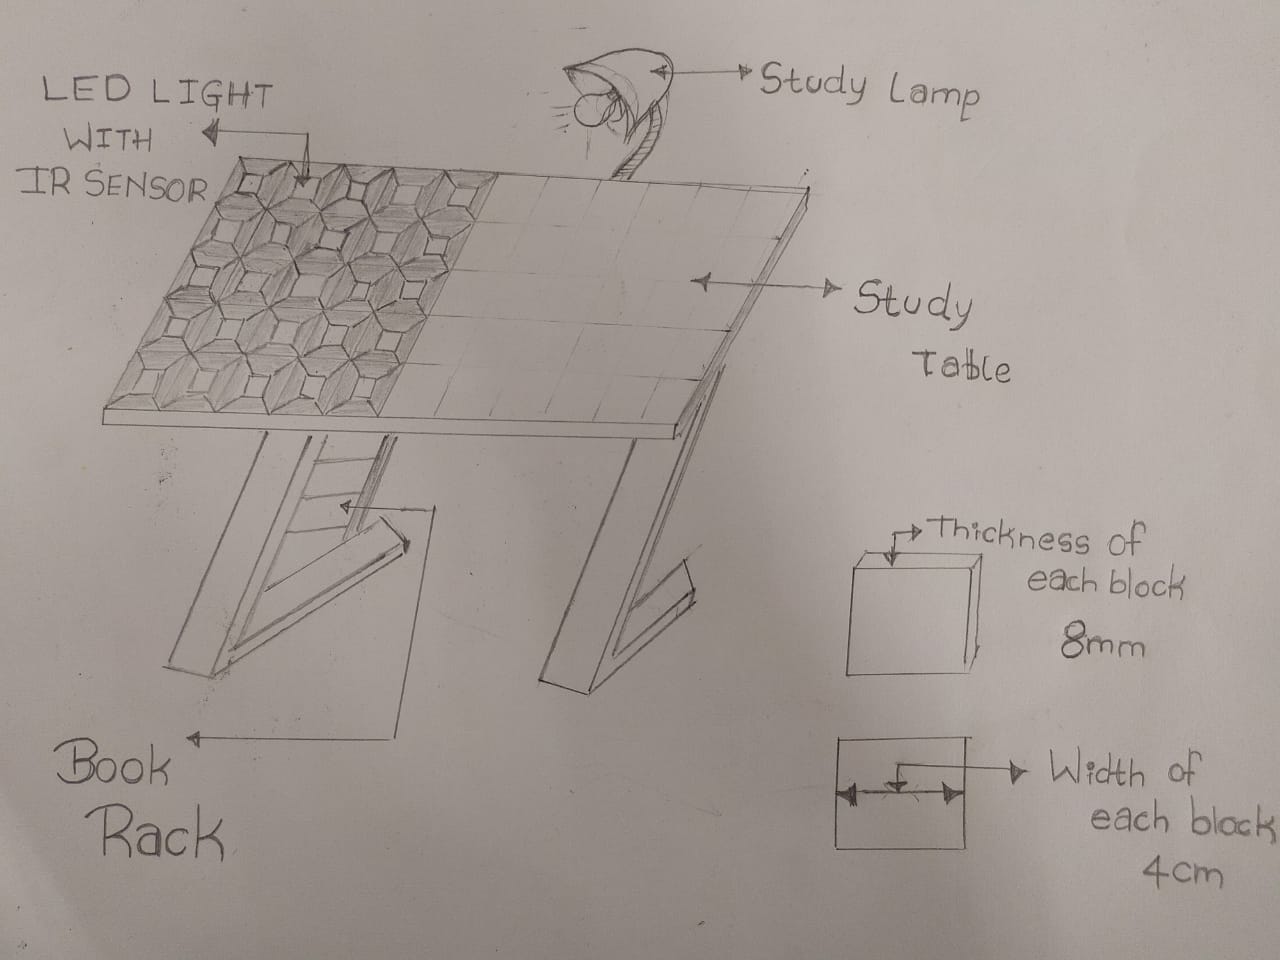 LED LIGHT
WITH
IR SENSOR
Study Lamp
Study
Table
Thickness of
each block
8mm
Book
Rack
Width of
each block
4cm